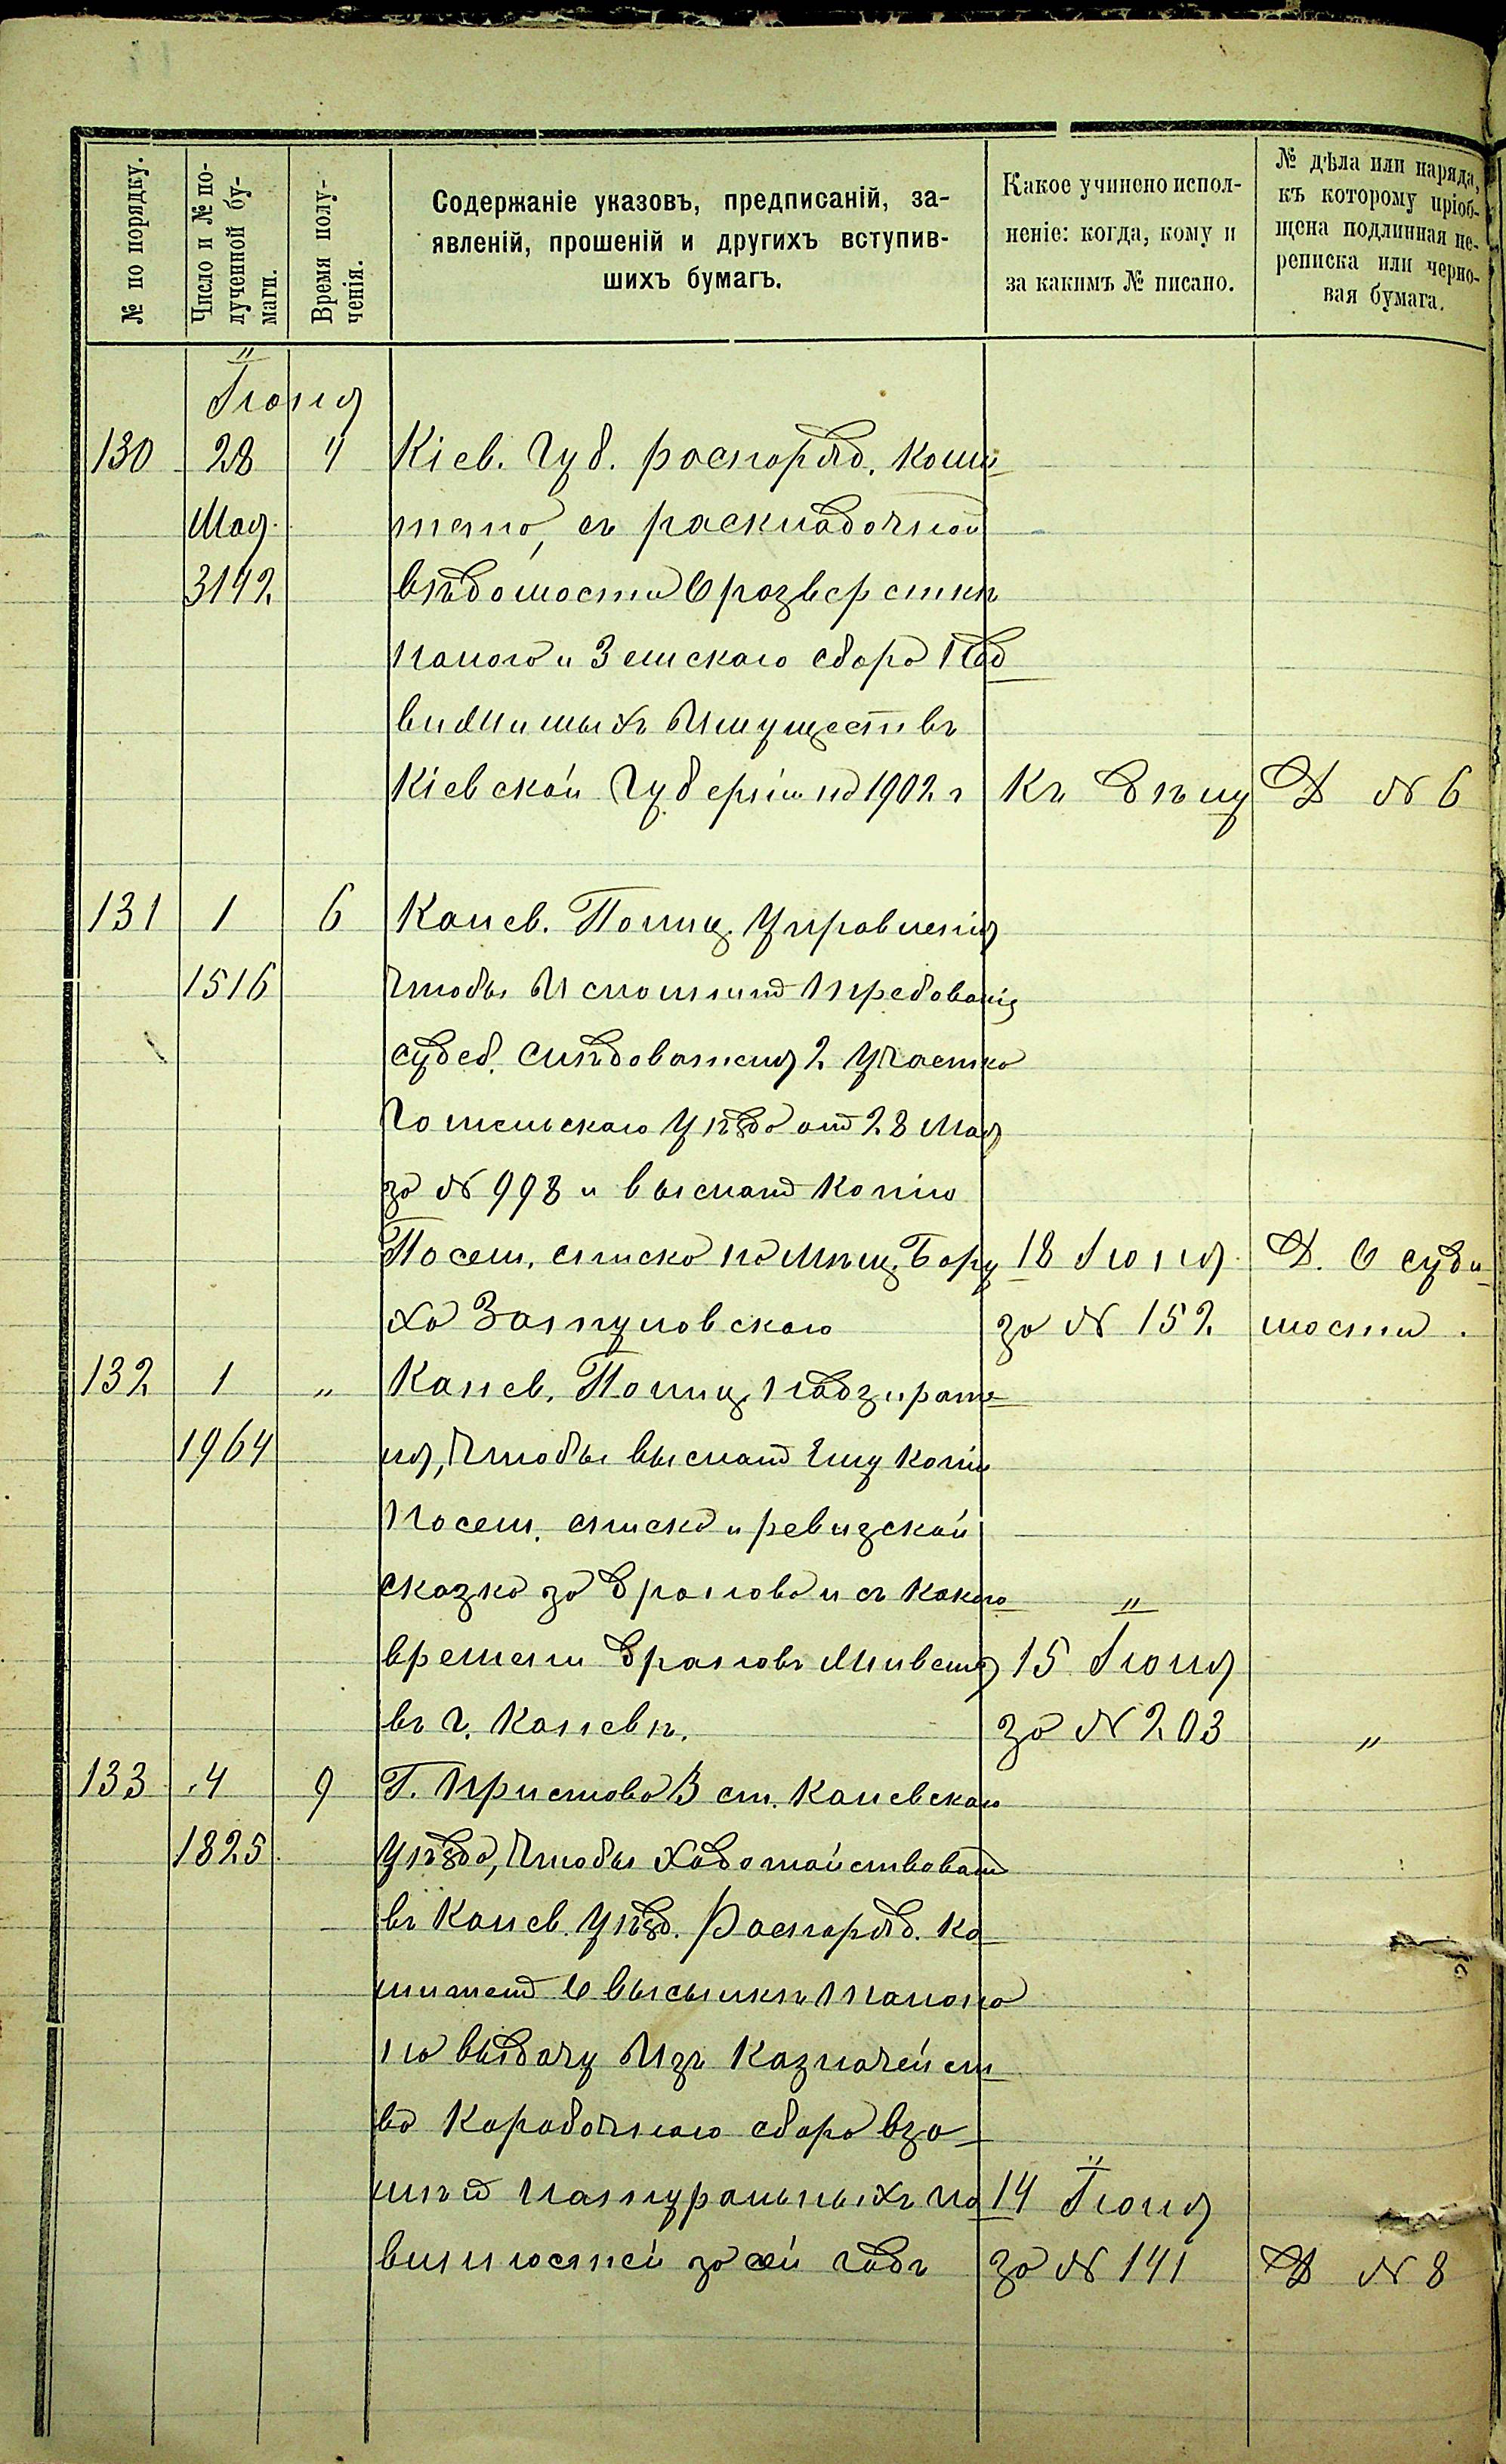 № по порядку.
Число и № по-
лученной бу-
маги.
Время полу-
ченія.
Содержаніе указовъ, предписаній, за-
явленій, прошеній и другихъ вступив-
шихъ бумагъ.
Какое учинено испол-
неніе: когда, кому и
за какимъ № писано.
№ дѣла или наряда,
къ которому пріоб-
щена подлинная пе-
реписка или черно-
вая бумага.
Іюня
130 28 4 Кіев. Губ. распоряд. коми-
Мая тета, съ раскладочной
3142 вѣдомости О розверстке
налога и Земскаго сбора Нед-
вижимыхъ Имуществъ
Кіевской Губерніи на 1902 г Къ дѣлу Д № 6
131 1 6 Канев. Полиц. Управленія
1516 чтобы Исполнить требованія
судеб. Слѣдователя 2 участка
Гомельскаго уѣзда от 28 Мая
за № 998 и выслать копію
Посем. списка на Мѣщ. Бору 18 Іюня Д. О суди-
ха Заслуповскаго за № 152 мости.
132 1 " Канев. Полиц. Надзирате-
1964 ля, чтобы выслать Ему копіи
Посем. списка и ревизской
сказка за Дралова и съ какого
времени Драловъ живетъ 15 Іюня
въ г. Каневѣ. за № 203 "
133 4 9 Г. Пристава 3 ст. Каневскаго
1825 уѣзда, чтобы ходотайствовать
въ Канев. уѣзд. Распоряд. Ко-
митет О высылкѣ талона
на выдачу Изъ Казначейст-
ва Коробочнаго сбора вза-
мѣнъ натуральныхъ по- 14 Іюня
винностей за сей годъ за № 141 Д № 8